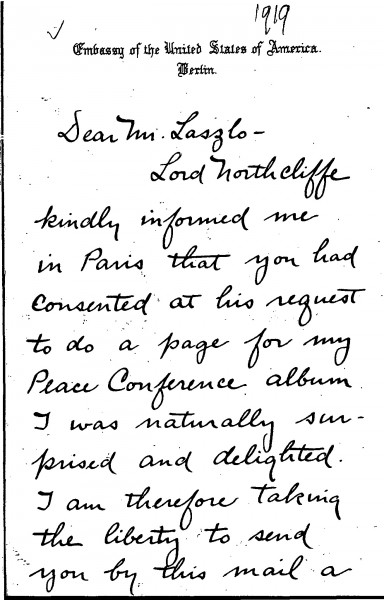 1919
Embassy of the United States of America.
Berlin.
Dear Mr. Laszlo -
Lord Northcliffe
kindly informed me
in Paris that you had
consented at his request
to do a page for my
Peace Conference album
I was naturally sur-
prised and delighted.
I am therefore taking
the liberty to send
you by this mail a